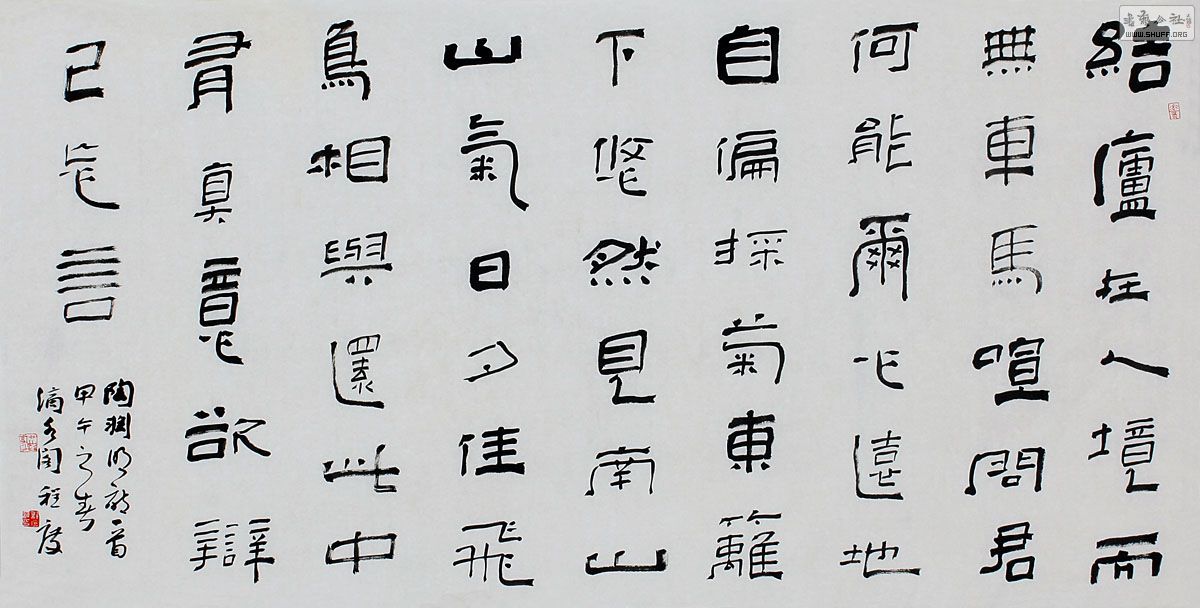 結廬在人境而
無車馬喧問君
何能爾心遠地
自偏採菊東籬
下悠然見南山
山氣日夕佳飛
鳥相與還此中
有真意欲辯
已忘言
陶淵明詩一首
甲午之春
滴水閣程度
书法公社
WWW.SHUFF.ORG